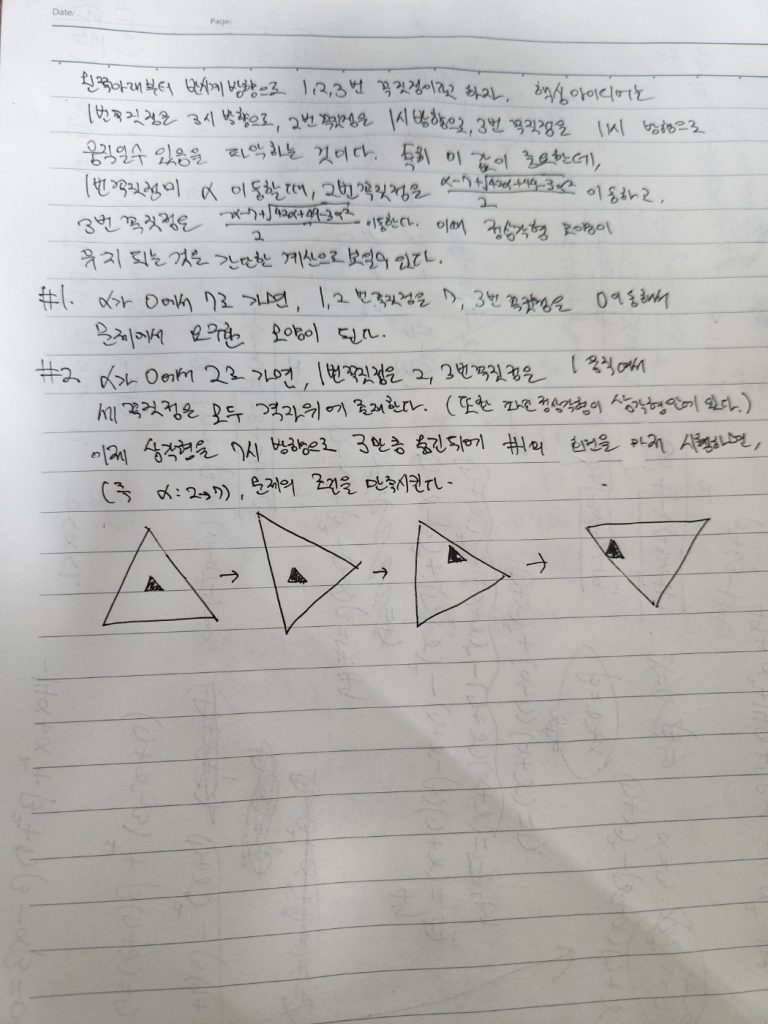 Date/
Page/
왼쪽아래부터 반시계방향으로 1,2,3번 꼭짓점이라고 하자. 핵심아이디어는
1번꼭짓점은 3시 방향으로, 2번 꼭짓점은 1시방향으로, 3번 꼭짓점은 11시 방향으로
움직일수 있음을 파악하는 것이다. 특히 이 값이 중요한데,
1번꼭짓점이 α 이동할때, 2번꼭짓점은 (α-7+√(42α+49-3α²))/2 이동하고,
3번 꼭짓점은 (-α-7+√(42α+49-3α²))/2 이동한다. 이때 정삼각형 모양이
유지 되는 것을 간단한 계산으로 보일수 있다.
#1. α가 0에서 7로 가면, 1,2번꼭짓점은 7, 3번 꼭짓점은 0이동해서
문제에서 요구한 모양이 된다.
#2 α가 0에서 2로 가면, 1번꼭짓점은 2, 3번꼭짓점은 1 움직여서
세 꼭짓점은 모두 격자위에 존재한다. (또한 파란정삼각형이 삼각형안에 있다.)
이제 삼각형을 7시 방향으로 3만큼 옮긴뒤에 #1의 마저 시행하면,
(즉 α:2→7), 문제의 조건을 만족시킨다.